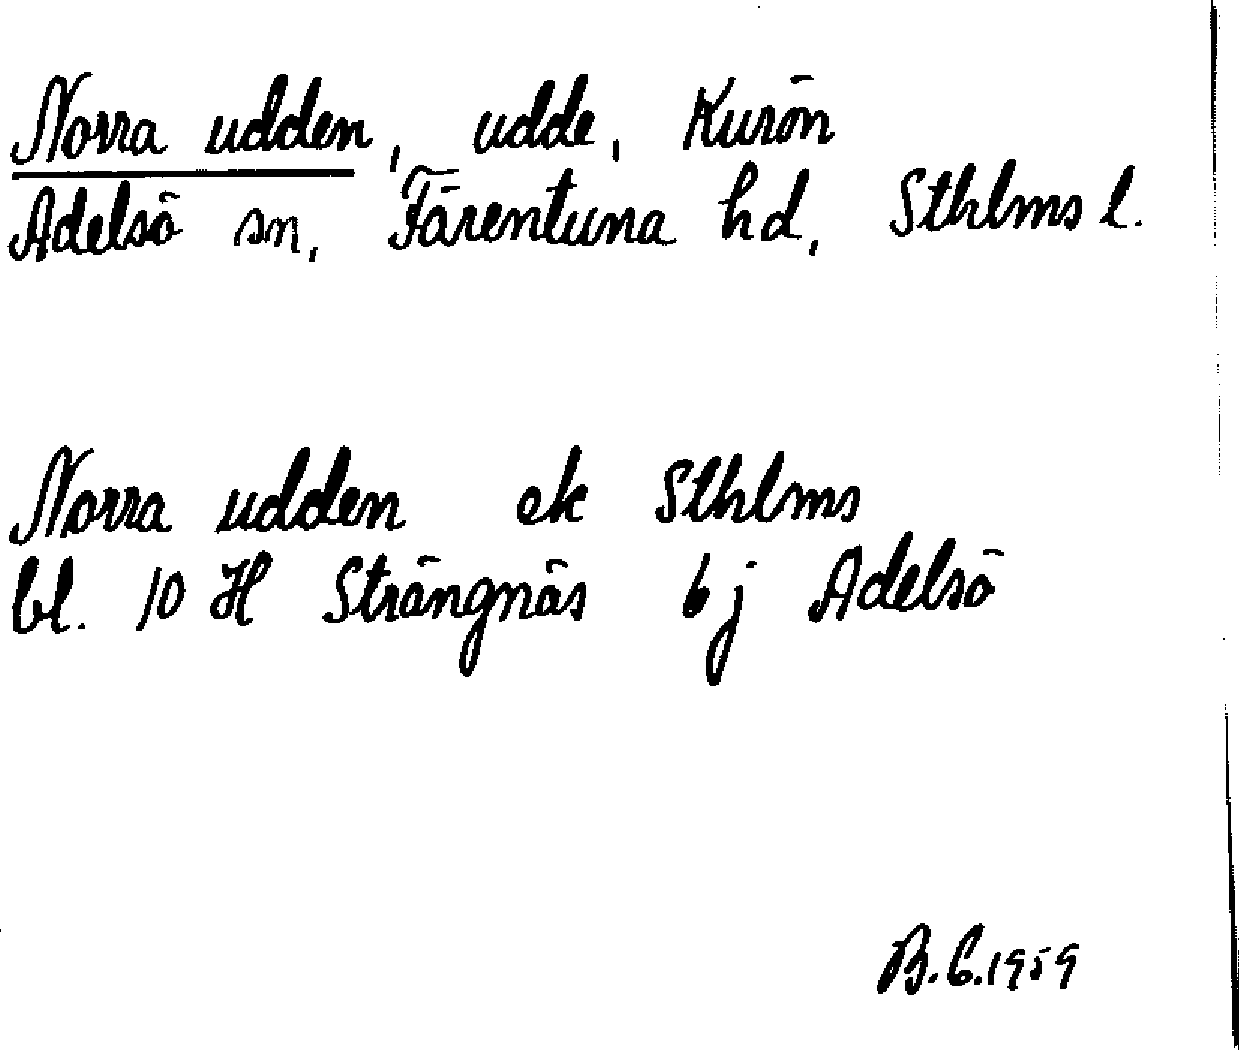 Norra udden, udde, Kurön
Adelsö sn, Färentuna hd, Sthlms l.
Norra udden ek Sthlms
bl. 10 H Strängnäs 6j Adelsö
B.C.1959